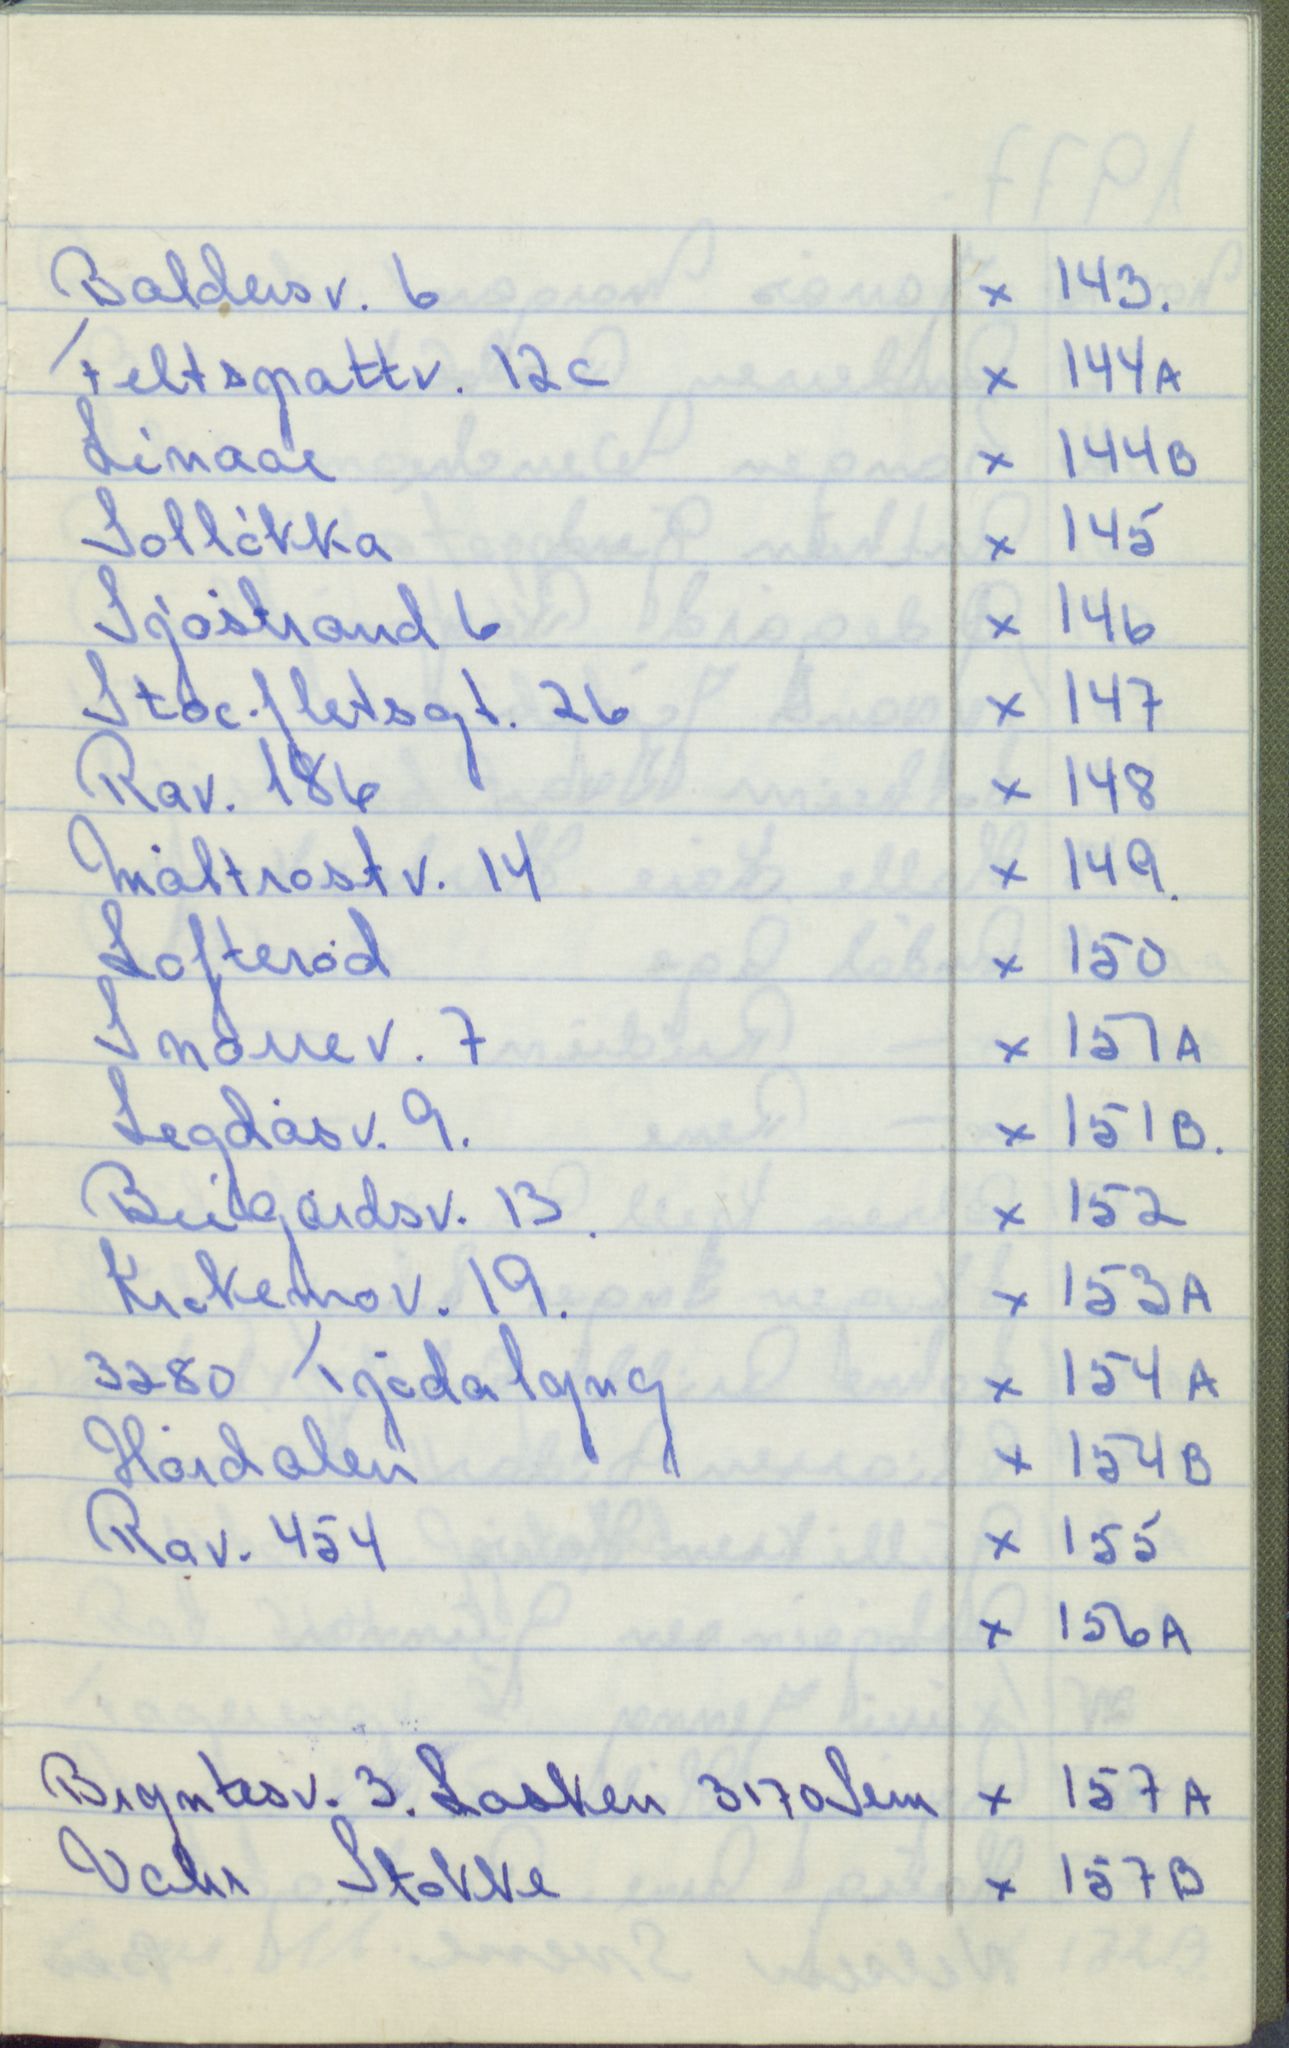 Baldersv. 6 x 143.
Feltspattv. 12c x 144A
Linaae x 144B
Solløkka x 145
Sjøstrand 6 x 146
Stoc.fletsgt. 26 x 147
Rav. 186 x 148
Måltrostv. 14 x 149.
Lofterød x 150
Snorrev. 7 x 151A
Legdåsv. 9. x 151B.
Bugårdsv. 13. x 152
Krokemov. 19. x 153A
3280 Tjødalyng x 154A
Hårdalen x 154B
Rav. 454 x 155
x 156A
Bryntesv. 3. Lasken 3170 Sem x 157A
Stokke x 157B